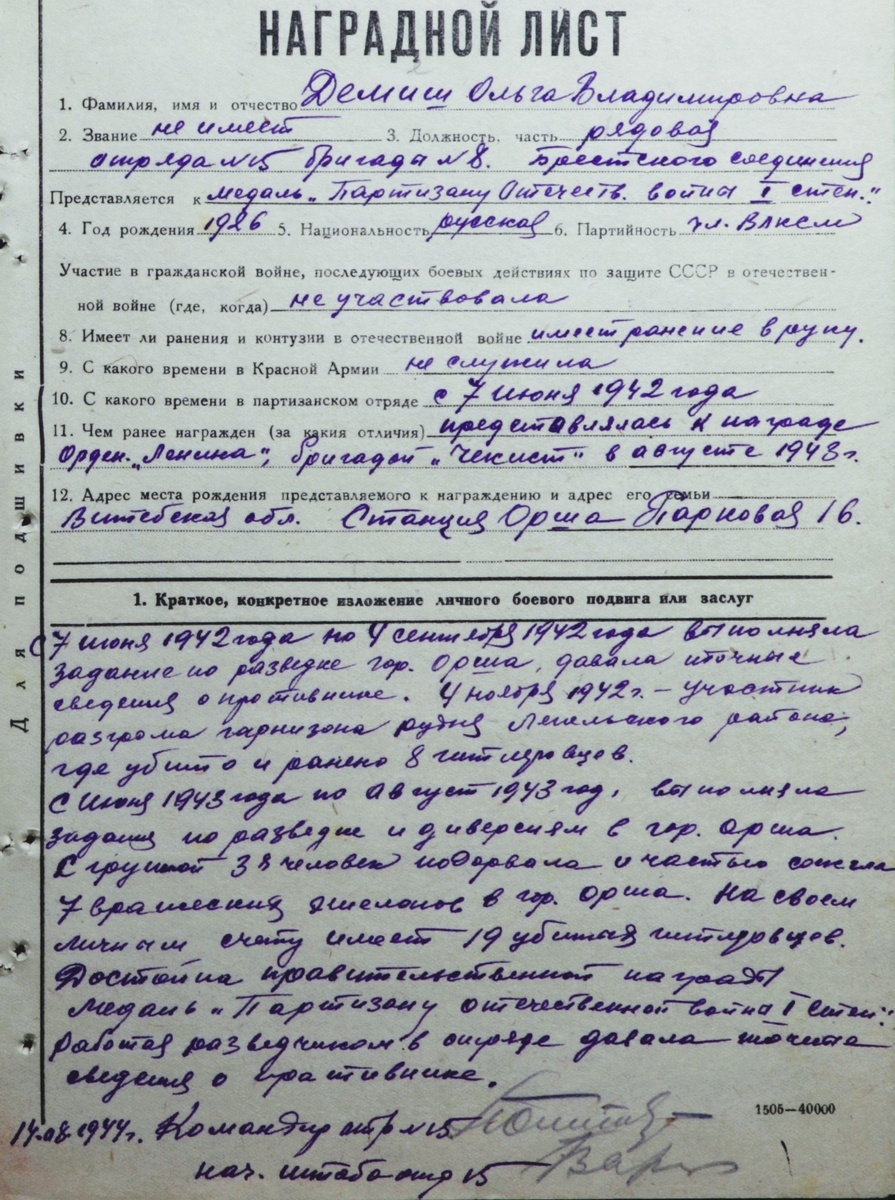 НАГРАДНОЙ ЛИСТ
1. Фамилия, имя и отчество Демиш Ольга Владимировна
2. Звание не имеет 3. Должность, часть рядовая
отряда №15 бригады №8. Брестского соединения
Представляется к медаль „Партизану Отечеств. война I степ."
4. Год рождения 1926 5. Национальность русская 6. Партийность чл. ВЛКСМ
Участие в гражданской войне, последующих боевых действиях по защите СССР в отечествен-
ной войне (где, когда) не участвовала
8. Имеет ли ранения и контузии в отечественной войне имеет ранение в руку.
9. С какого времени в Красной Армии не служила
10. С какого времени в партизанском отряде с 7 июня 1942 года
11. Чем ранее награжден (за какия отличия) представлялась к награде
Орден. „Ленина", бригадой „Чекист" в августе 1943 г.
12. Адрес места рождения представляемого к награждению и адрес его семьи
Витебская обл. Станция Орша Парковая 16.
1. Краткое, конкретное изложение личного боевого подвига или заслуг
С 7 июня 1942 года по 4 сентября 1942 года выполняла
задание по разведке гор. Орша, давала точные
сведения о противнике. 4 ноября 1942 г. - участник
разгрома гарнизона рудня Лепельского района,
где убито и ранено 8 гитлеровцов.
С июня 1943 года по август 1943 год, выполняла
задания по разведке и диверсиям в гор. Орша.
С группой 38 человек подорвала и частью сожгла
7 вражеских эшелонов в гор. Орша. На своем
личным счету имеет 19 убитых гитлеровцов.
Достойна правительственной награды
Медаль „Партизану отечественной война I степ."
Работая разведчиком в отряде давала точные
сведения о противнике.
1505—40000
14.08.1944 г. Командир отр №15
нач. штаба отр 15
Для подшивки